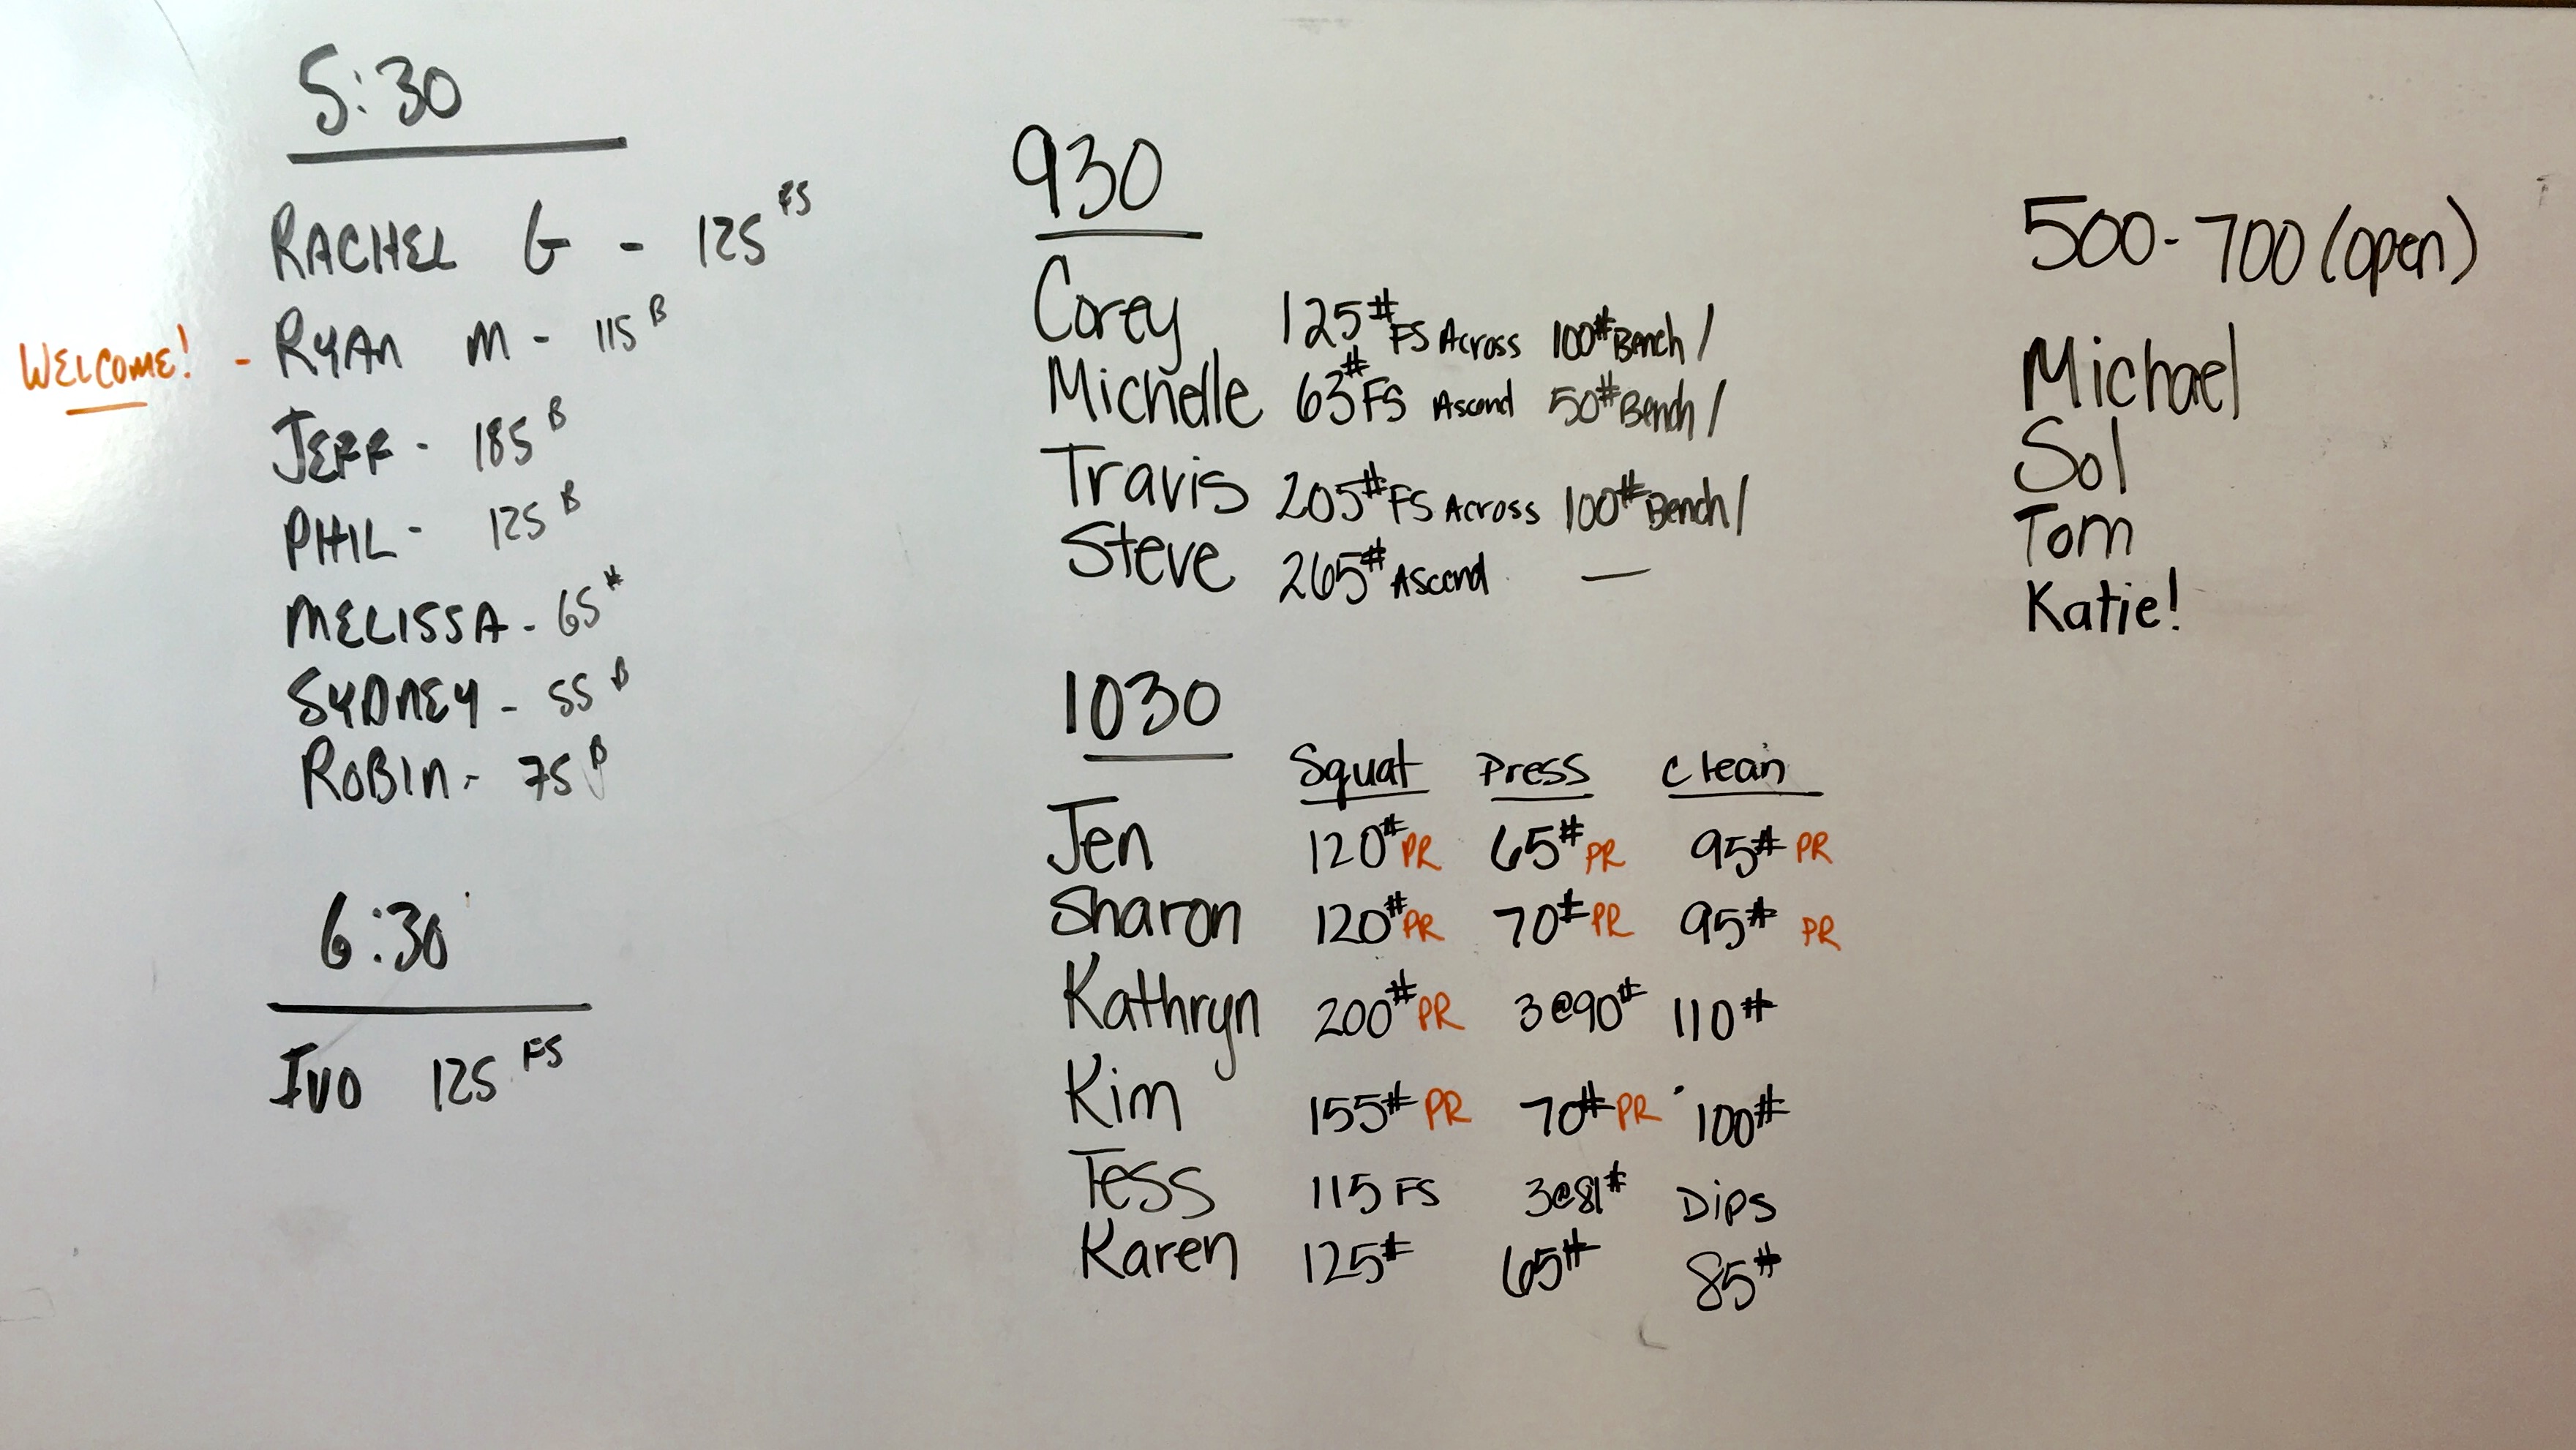 5:30
RACHEL G - 125 FS
WELCOME! - RYAN M - 115 B
JEFF - 185 B
PHIL - 125 B
MELISSA - 65 #
SYDNEY - 55 B
ROBIN - 75 B
6:30
IVO 125 FS
930
Corey 125# FS Across 100# Bench /
Michelle 63# FS Ascend 50# Bench /
Travis 205# FS Across 100# Bench /
Steve 265# Ascend —
1030
Squat Press Clean
Jen 120# PR 65# PR 95# PR
Sharon 120# PR 70# PR 95# PR
Kathryn 200# PR 3@90# 110#
Kim 155# PR 70# PR 100#
Tess 115 FS 3@81# Dips
Karen 125# 65# 85#
500-700 (open)
Michael
Sol
Tom
Katie!